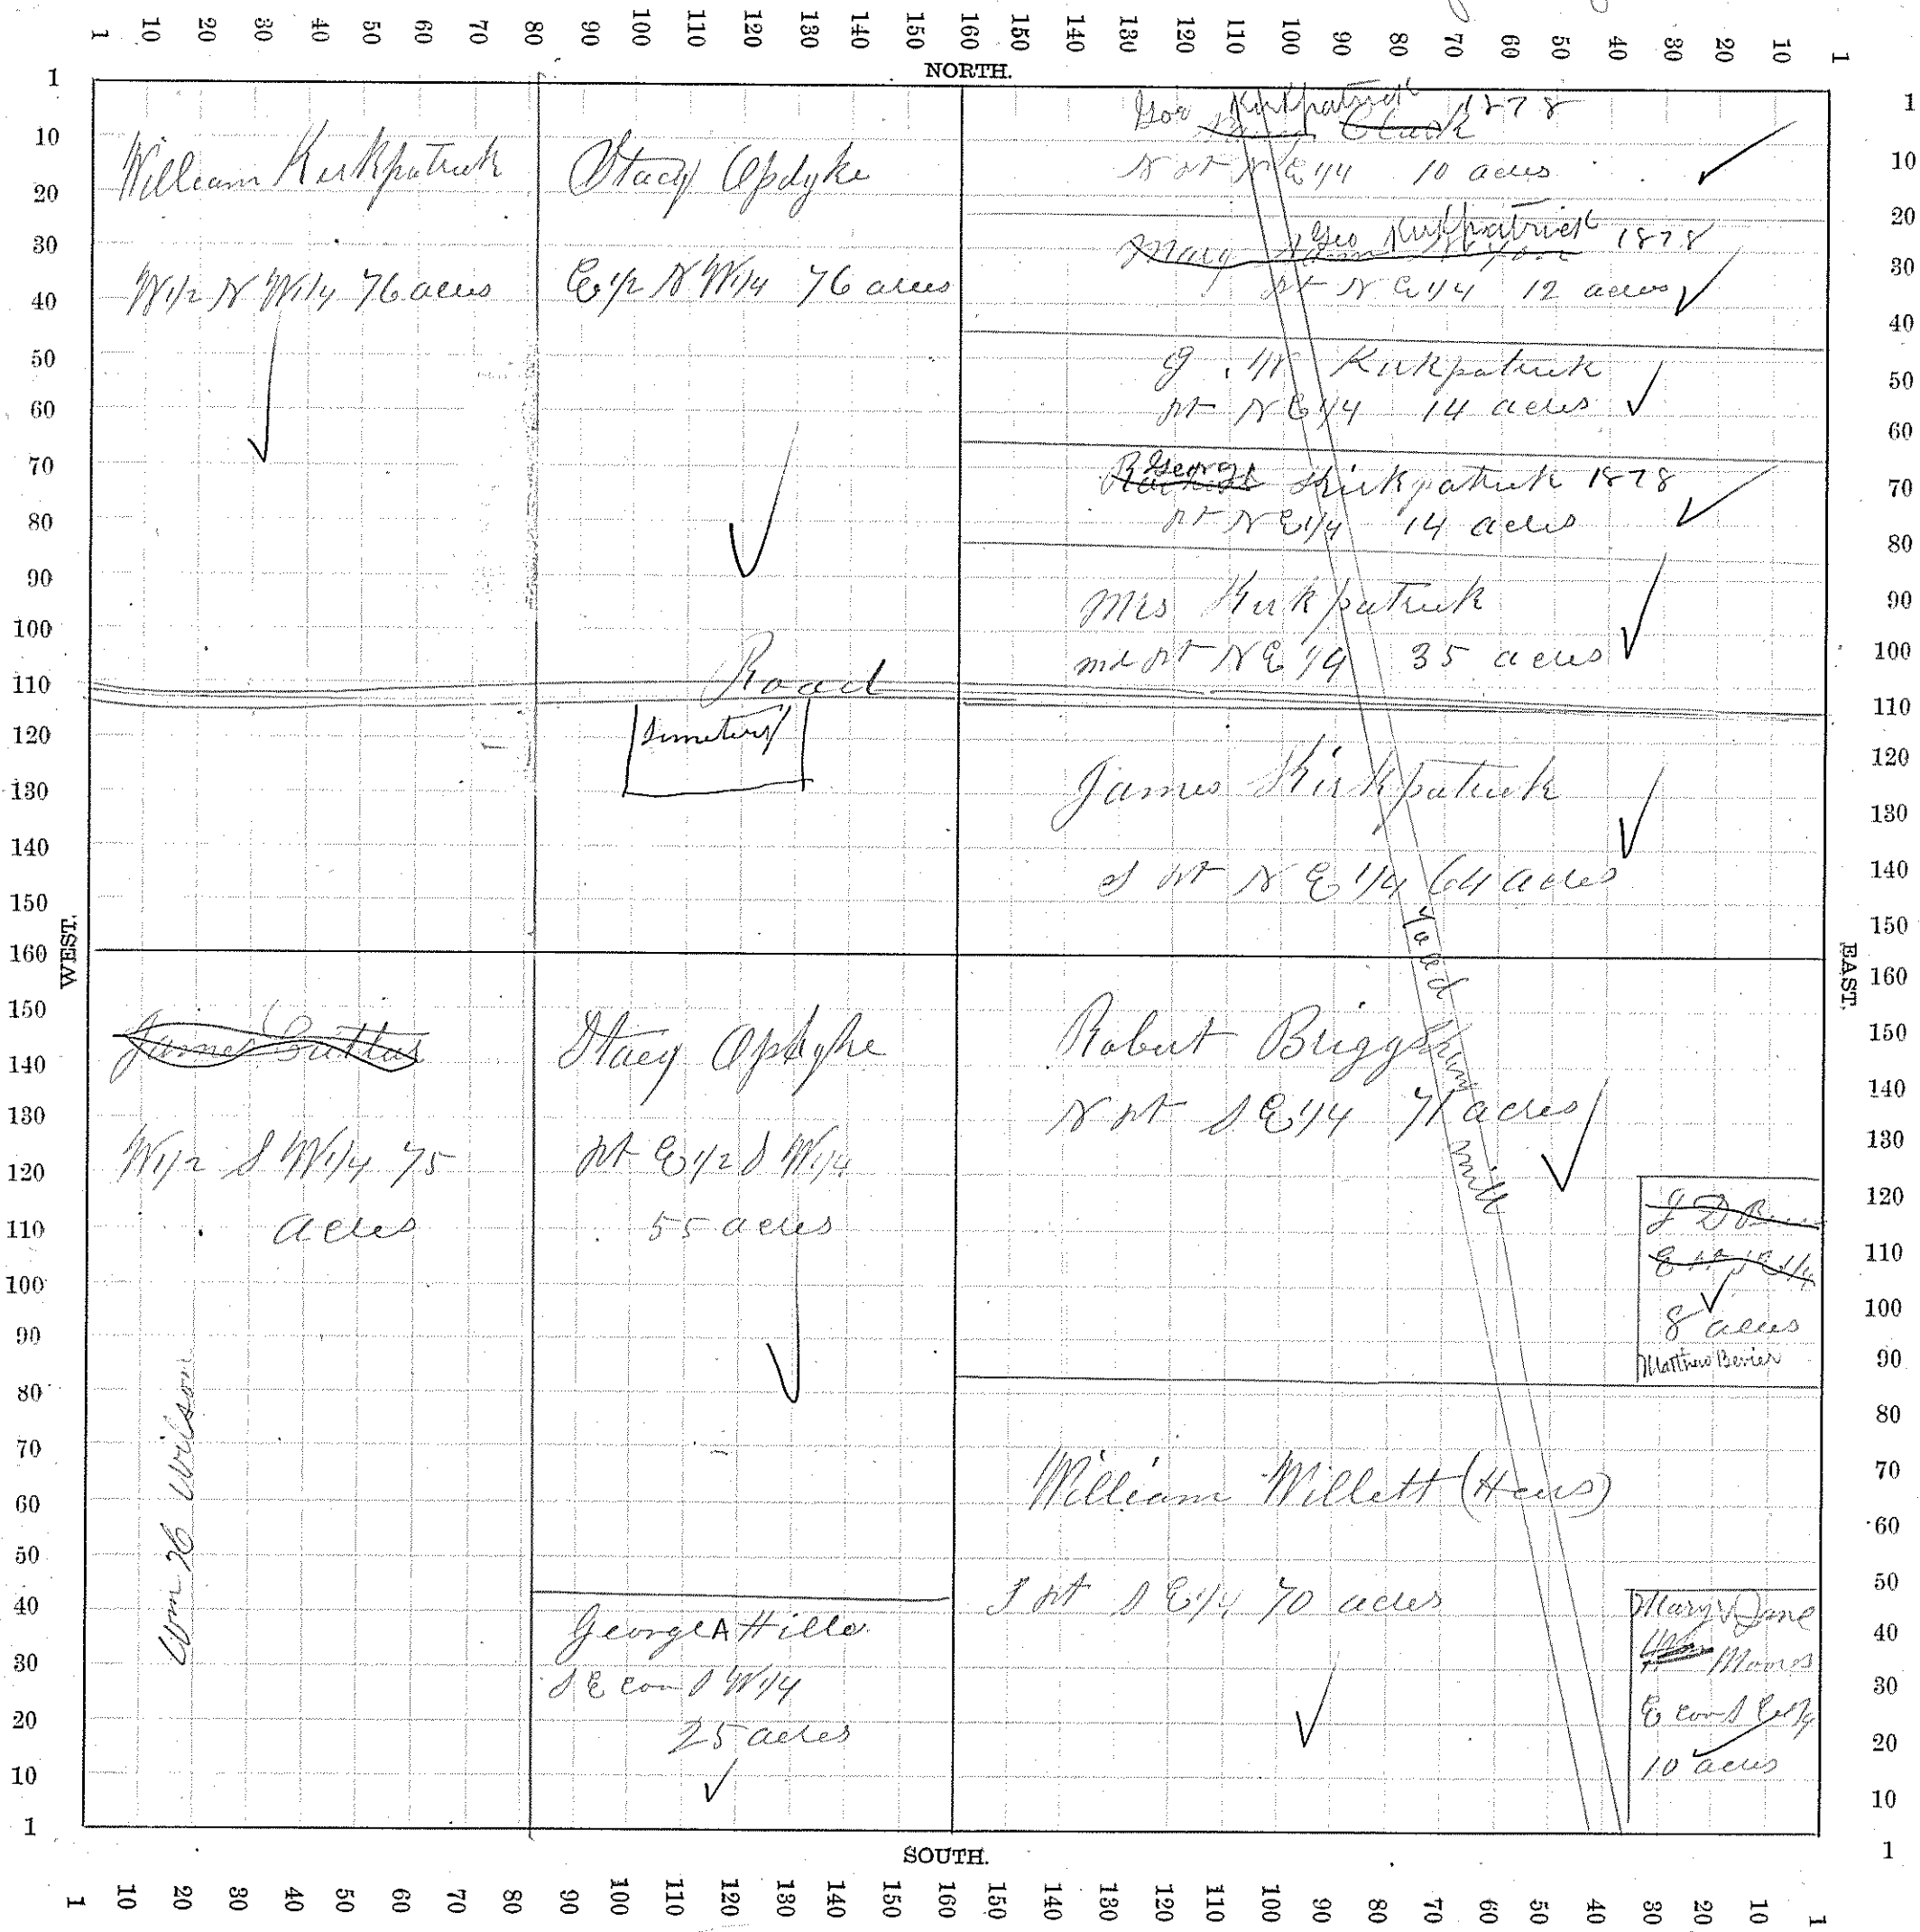 1 10 20 30 40 50 60 70 80 90 100 110 120 130 140 150 160 150 140 130 120 110 100 90 80 70 60 50 40 30 20 10 1
NORTH.
1 10 20 30 40 50 60 70 80 90 100 110 120 130 140 150 160 150 140 130 120 110 100 90 80 70 60 50 40 30 20 10 1
WEST.
William Kirkpatrick
W1/2 N W1/4 76 acres
Stacy Opdyke
E1/2 N W1/4 76 acres
Road
Simetery
Geo Kirkpatrick 1878
Clark
N pt N E 1/4 10 acres
Geo Kirkpatrick 1878
Mary
pt N E 1/4 12 acres
G. W Kirkpatrick
pt N E 1/4 14 acres
George Kirkpatrick 1878
pt N E 1/4 14 acres
Mrs Kirkpatrick
md pt N E 1/4 35 acres
James Kirkpatrick
S pt N E 1/4 64 acres
James
W1/2 S W1/4 75
acres
Wm H Wilson
Stacy Opdyke
pt E 1/2 S W1/4
55 acres
George A Hills
S E cor S W1/4
25 acres
Robert Briggs
N pt S E 1/4 71 acres
road
mill
J D
8 acres
Matthew Bevier
William Willett (Heirs)
S pt S E 1/4 70 acres
Mary & Jane
Moores
E cor S E 1/4
10 acres
1 10 20 30 40 50 60 70 80 90 100 110 120 130 140 150 160 150 140 130 120 110 100 90 80 70 60 50 40 30 20 10 1
EAST.
SOUTH.
1 10 20 30 40 50 60 70 80 90 100 110 120 130 140 150 160 150 140 130 120 110 100 90 80 70 60 50 40 30 20 10 1